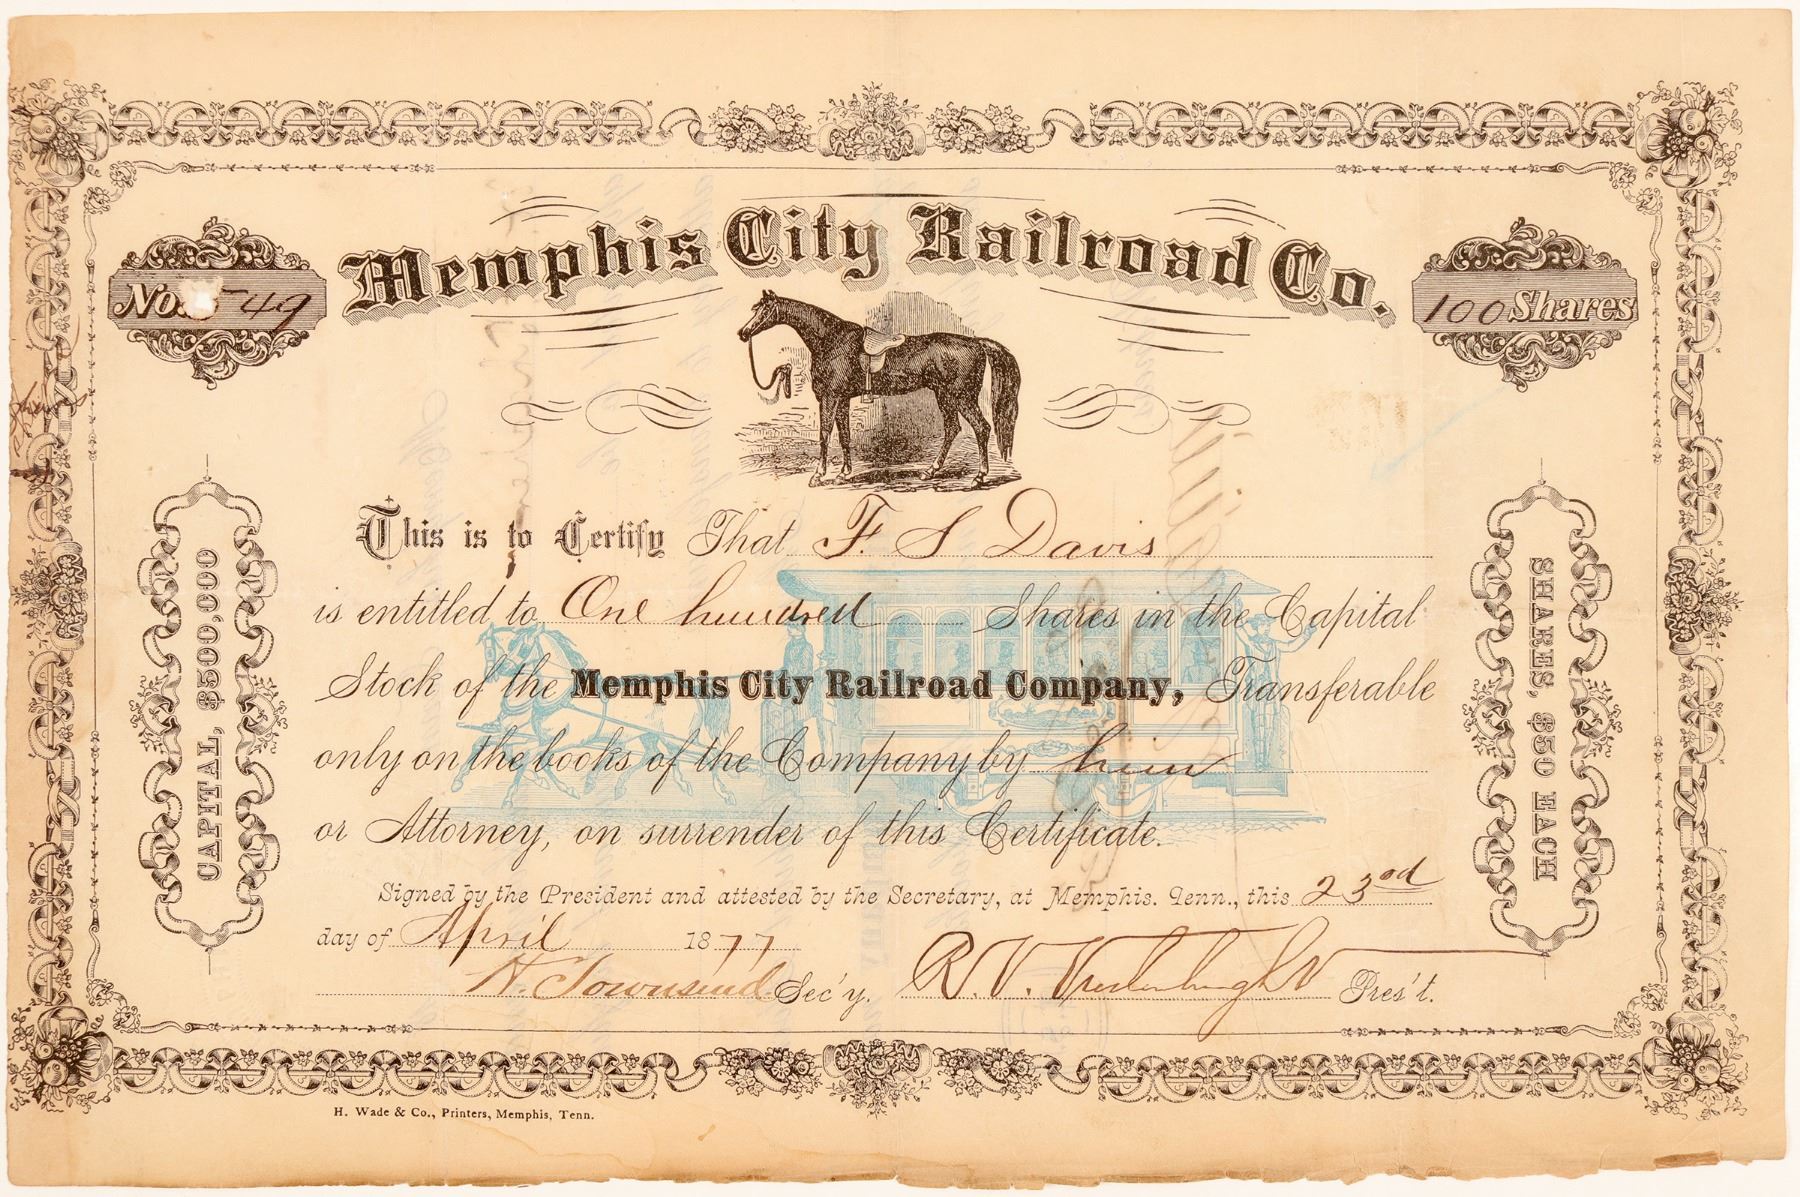 Memphis City Railroad Co.
No. 549
100 Shares
CAPITAL, $500,000
SHARES, $50 EACH
This is to Certify That F. S Davis
is entitled to One hundred Shares in the Capital
Stock of the Memphis City Railroad Company, Transferable
only on the books of the Company by him
or Attorney, on surrender of this Certificate.
Signed by the President and attested by the Secretary, at Memphis. Tenn., this 23rd
day of April 1877
N. Townsend Sec'y. R. V. Vredenburgh Pres't.
H. Wade & Co., Printers, Memphis, Tenn.